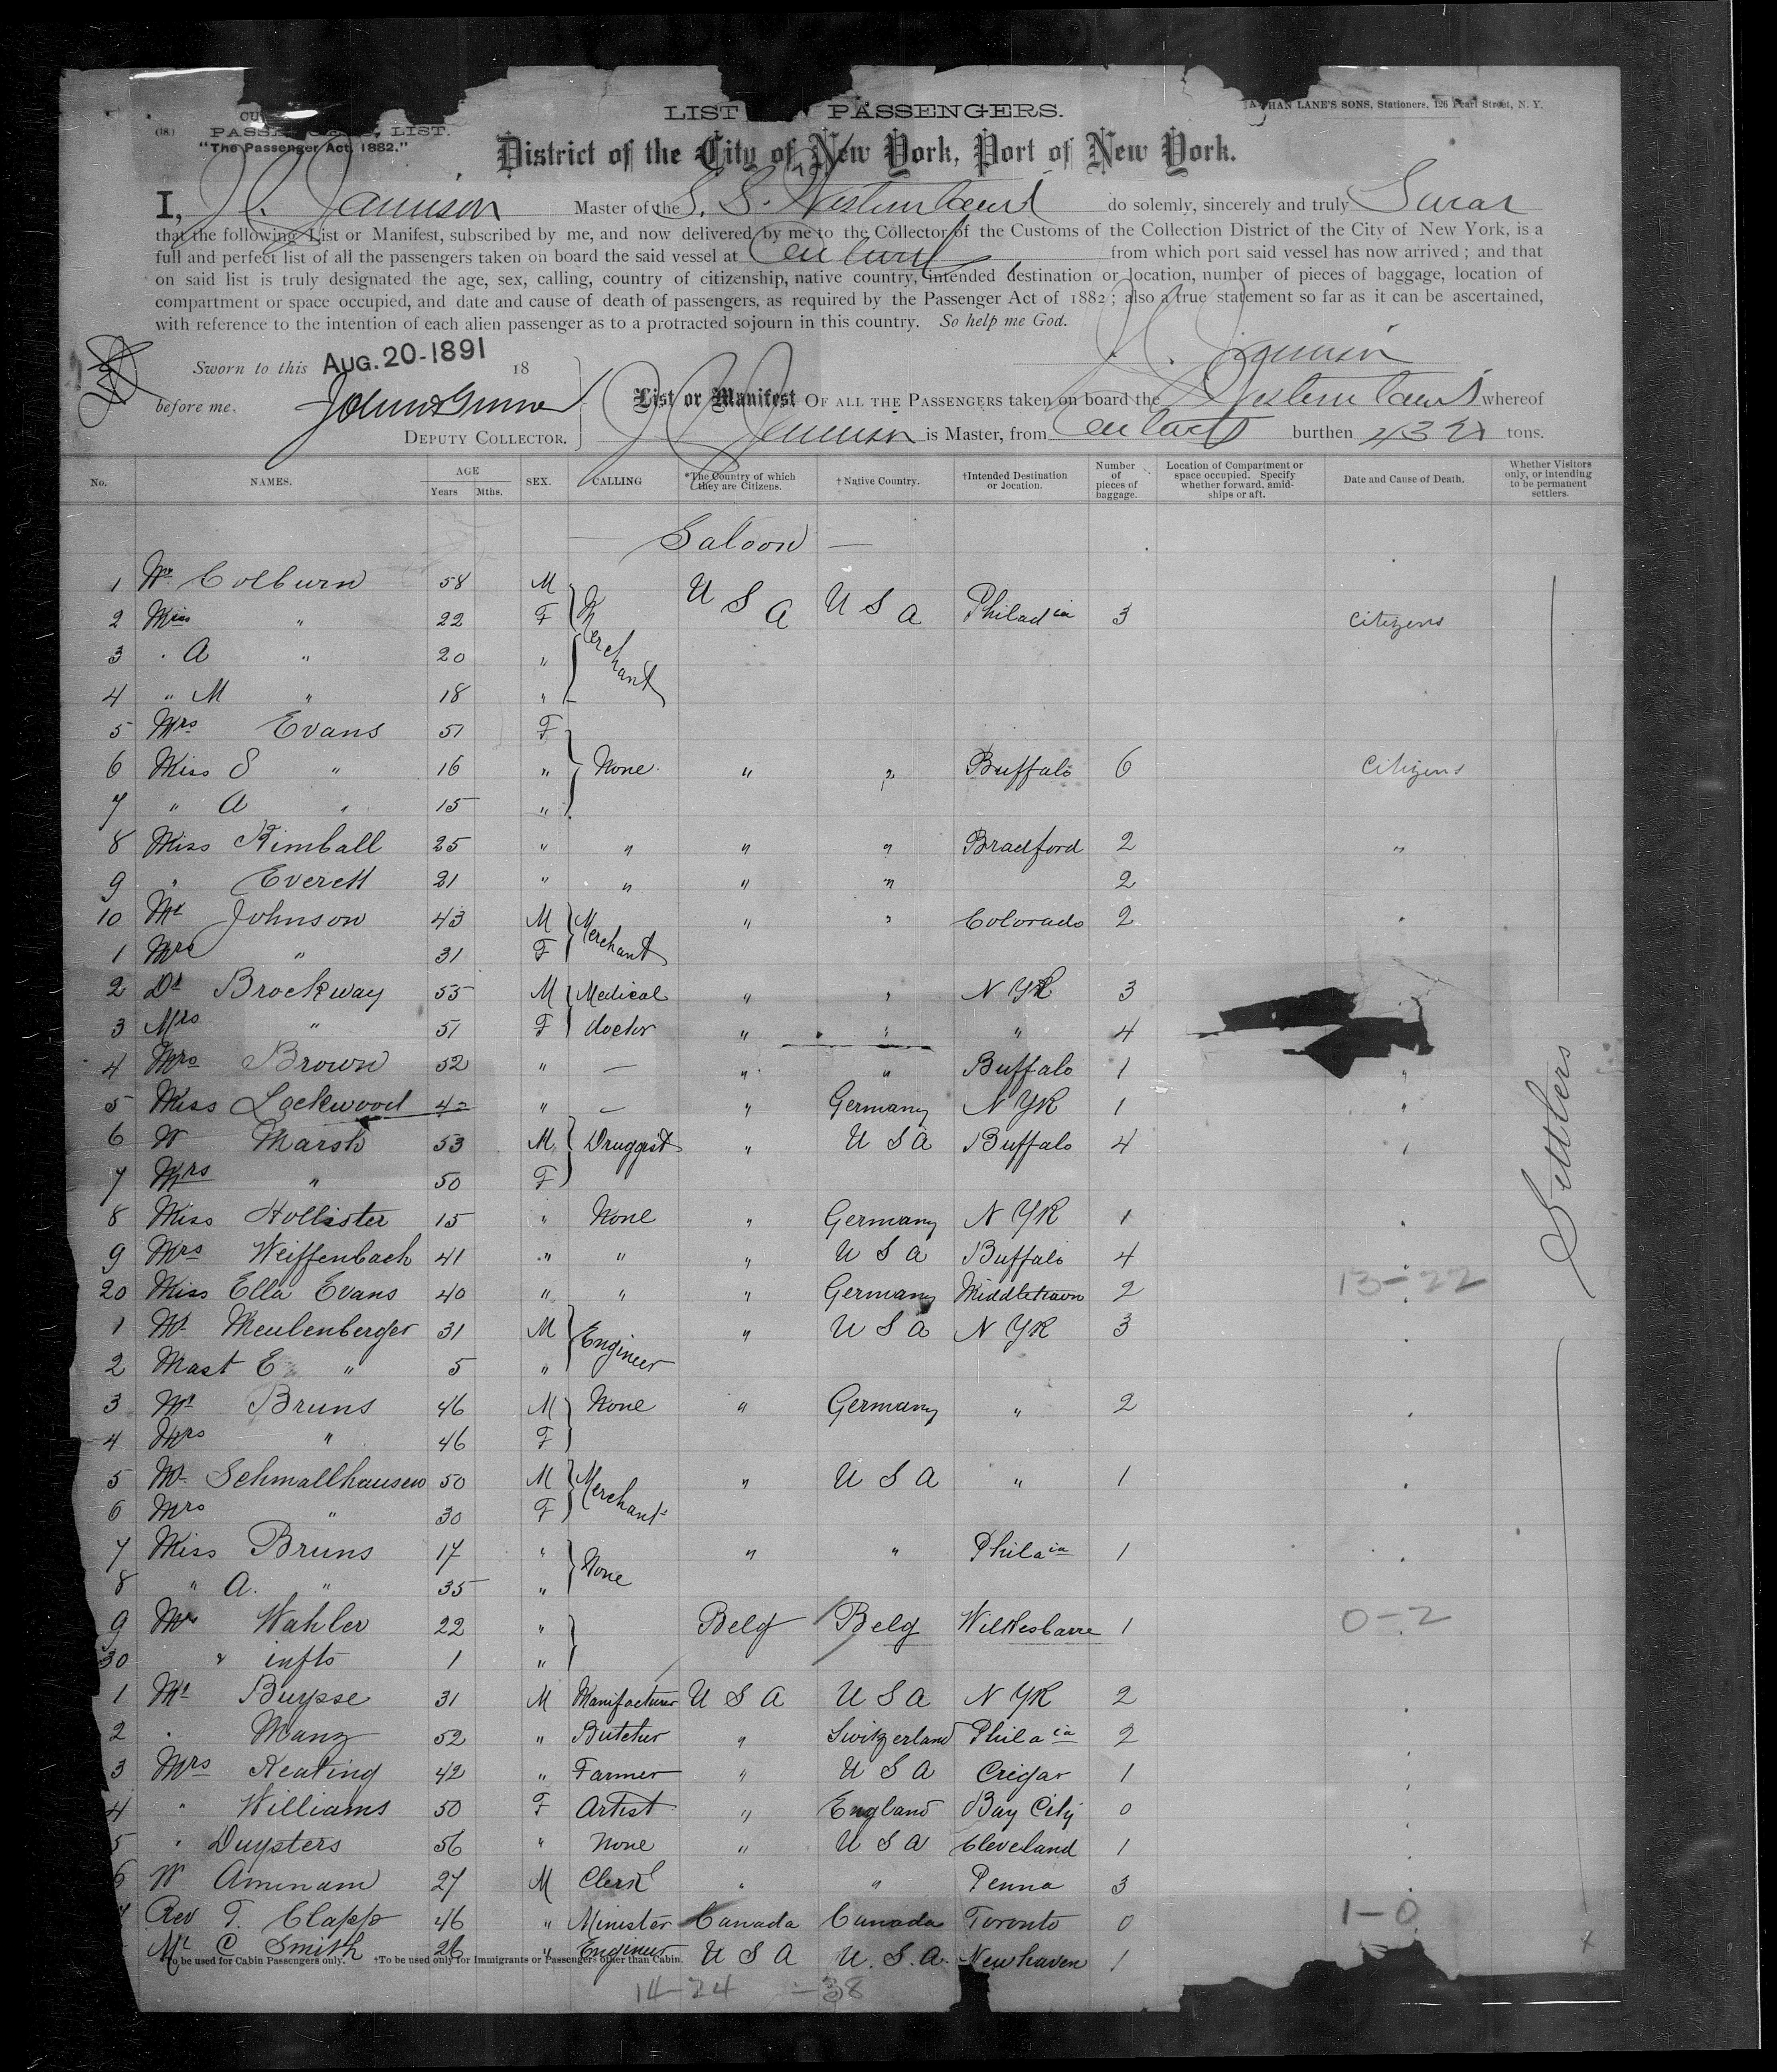 LIST PASSENGERS.
NATHAN LANE'S SONS, Stationers, 126 Pearl Street, N. Y.
(18.)
PASSENGERS, LIST.
"The Passenger Act, 1882."
District of the City of New York, Port of New York.
I, Jamison Master of the S. S. Westernland do solemnly, sincerely and truly Swear
that the following List or Manifest, subscribed by me, and now delivered by me to the Collector of the Customs of the Collection District of the City of New York, is a
full and perfect list of all the passengers taken on board the said vessel at Antwerp from which port said vessel has now arrived ; and that
on said list is truly designated the age, sex, calling, country of citizenship, native country, intended destination or location, number of pieces of baggage, location of
compartment or space occupied, and date and cause of death of passengers, as required by the Passenger Act of 1882 ; also a true statement so far as it can be ascertained,
with reference to the intention of each alien passenger as to a protracted sojourn in this country. So help me God.
Jamison
Sworn to this AUG. 20-1891 18
before me,
List or Manifest OF ALL THE PASSENGERS taken on board the Westernland whereof
DEPUTY COLLECTOR.
Jamison is Master, from Antwerp burthen tons.
No. NAMES. AGE Years Mths. SEX. CALLING *The Country of which they are Citizens. †Native Country. †Intended Destination or Location. Number of pieces of baggage. Location of Compartment or space occupied. Specify whether forward, amidships or aft. Date and Cause of Death. Whether Visitors only, or intending to be permanent settlers.
— Saloon —
1 Mr Colburn 58 M Merchant
2 Miss " 22 F U S A U S A Philadia 3 Citizens
3 . A " 20 "
4 " M " 18 "
5 Mrs Evans 51 F
6 Miss S " 16 " None " " Buffalo 6 Citizens
7 " A " 15 "
8 Miss Kimball 25 " " " " Bradford 2 "
9 " Everett 21 " " " " 2
10 Mr Johnson 43 M Merchant " " Colorado 2 "
1 Mrs " 31 F
2 Dr Brockway 55 M Medical " " N YK 3
3 Mrs " 51 F doctor " " " 4
4 Mrs Brown 52 " — " " Buffalo 1 "
5 Miss Lockwood 40 " — " Germany N YK 1 "
6 Mr Marsh 53 M Druggist " U S A Buffalo 4 "
7 Mrs " 50 F
8 Miss Hollister 15 " None " Germany N YK 1 "
9 Mrs Weiffenbach 41 " " " U S A Buffalo 4 "
20 Miss Ella Evans 40 " " " Germany Middletown 2 13-22
1 Mr Meulenberger 31 M Engineer " U S A N YK 3
2 Mast E " 5 "
3 Mr Bruns 46 M None " Germany " 2
4 Mrs " 46 F
5 Mr Schmallhausen 50 M Merchant " U S A " 1
6 Mrs " 30 F
7 Miss Bruns 17 " None " " Philaia 1
8 " A. " 35 "
9 Mrs Wahler 22 " Belg Belg Wilkesbarre 1 0-2
30 " infts 1 "
1 Mr Buysse 31 M Manifacturer U S A U S A N YK 2
2 " Manz 52 " Butcher " Switzerland Philaia 2
3 Mrs Keating 42 " Farmer " U S A Crigar 1
4 " Williams 50 F Artist " England Bay City 0
5 " Duysters 56 " None " U S A Cleveland 1
6 Mr Aminam 27 M Clerk " " Penna 3
7 Rev T. Clapp 46 " Minister Canada Canada Toronto 0 1-0
Mr C Smith 26 " Engineer U S A U. S. A. Newhaven 1
To be used for Cabin Passengers only. †To be used only for Immigrants or Passengers other than Cabin.
14-24 -38
Settlers